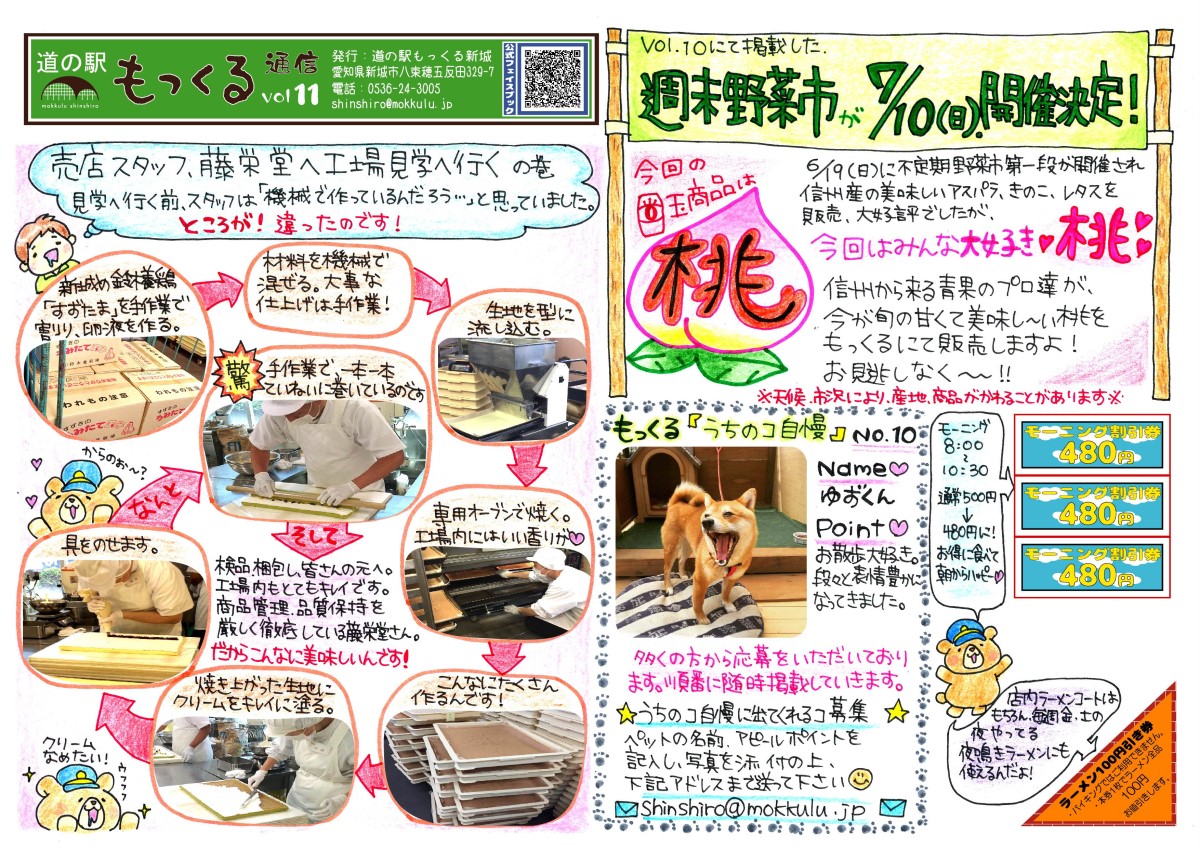 道の駅
mokkulu shinshiro
もっくる
通信
vol 11
発行:道の駅もっくる新城
愛知県新城市八束穂五反田329-7
電話:0536-24-3005
shinshiro@mokkulu.jp
公式フェイスブック
売店スタッフ、藤栄堂へ工場見学へ行くの巻
見学へ行く前、スタッフは「機械で作っているんだろう…」と思っていました。
ところが!違ったのです!
新城の銘養鶏
「すおたま」を手作業で
割り、卵液を作る。
われもの注意
材料を機械で
混ぜる。大事な
仕上げは手作業!
生地を型に
流し込む。
専用オーブンで焼く。
工場内にはいい香りが♥
こんなにたくさん
作るんです!
焼き上がった生地に
クリームをキレイに塗る。
クリーム
なめたい!
ウフフフ
具をのせます。
からのぉ~?
なんと
驚
手作業で、一本一本
ていねいに巻いているのです
そして
検品、梱包し、皆さんの元へ。
工場内もとてもキレイです。
商品管理、品質保持を
厳しく徹底している藤栄堂さん。
だからこんなに美味しいんです!
Vol.10にて掲載した、
週末野菜市が7/10(日)、開催決定!
今回の
目玉商品は
桃
6/19(日)に不定期野菜市第一段が開催され
信州産の美味しいアスパラ、きのこ、レタスを
販売、大好評でしたが、
今回はみんな大好き♥桃♥
信州から来る青果のプロ達が、
今が旬の甘くて美味し~い桃を
もっくるにて販売しますよ!
お見逃しなく~~!!
※天候、市況により、産地、商品がかわることがあります※
もっくる『うちのコ自慢』No.10
Name♥
ゆおくん
Point♥
お散歩大好き。
段々と表情豊かに
なってきました。
多くの方から応募をいただいており
ます。順番に随時掲載していきます。
☆うちのコ自慢に出てくれるコ募集☆
ペットの名前、アピールポイントを
記入し、写真を添付の上、
下記アドレスまで送って下さい
Shinshiro@mokkulu.jp
モーニング
8:00
~
10:30
通常500円
↓
480円に!
お得に食べて
朝からハッピー♥
モーニング割引券
480円
モーニング割引券
480円
モーニング割引券
480円
店内ラーメンコートは
もちろん、毎週金・土の
夜やってる
夜鳴きラーメンにも
使えるんだよ!
ラーメン100円引き券
・バイキングではご利用できません。
・本券1枚でラーメン全品
100円
お値引きします。